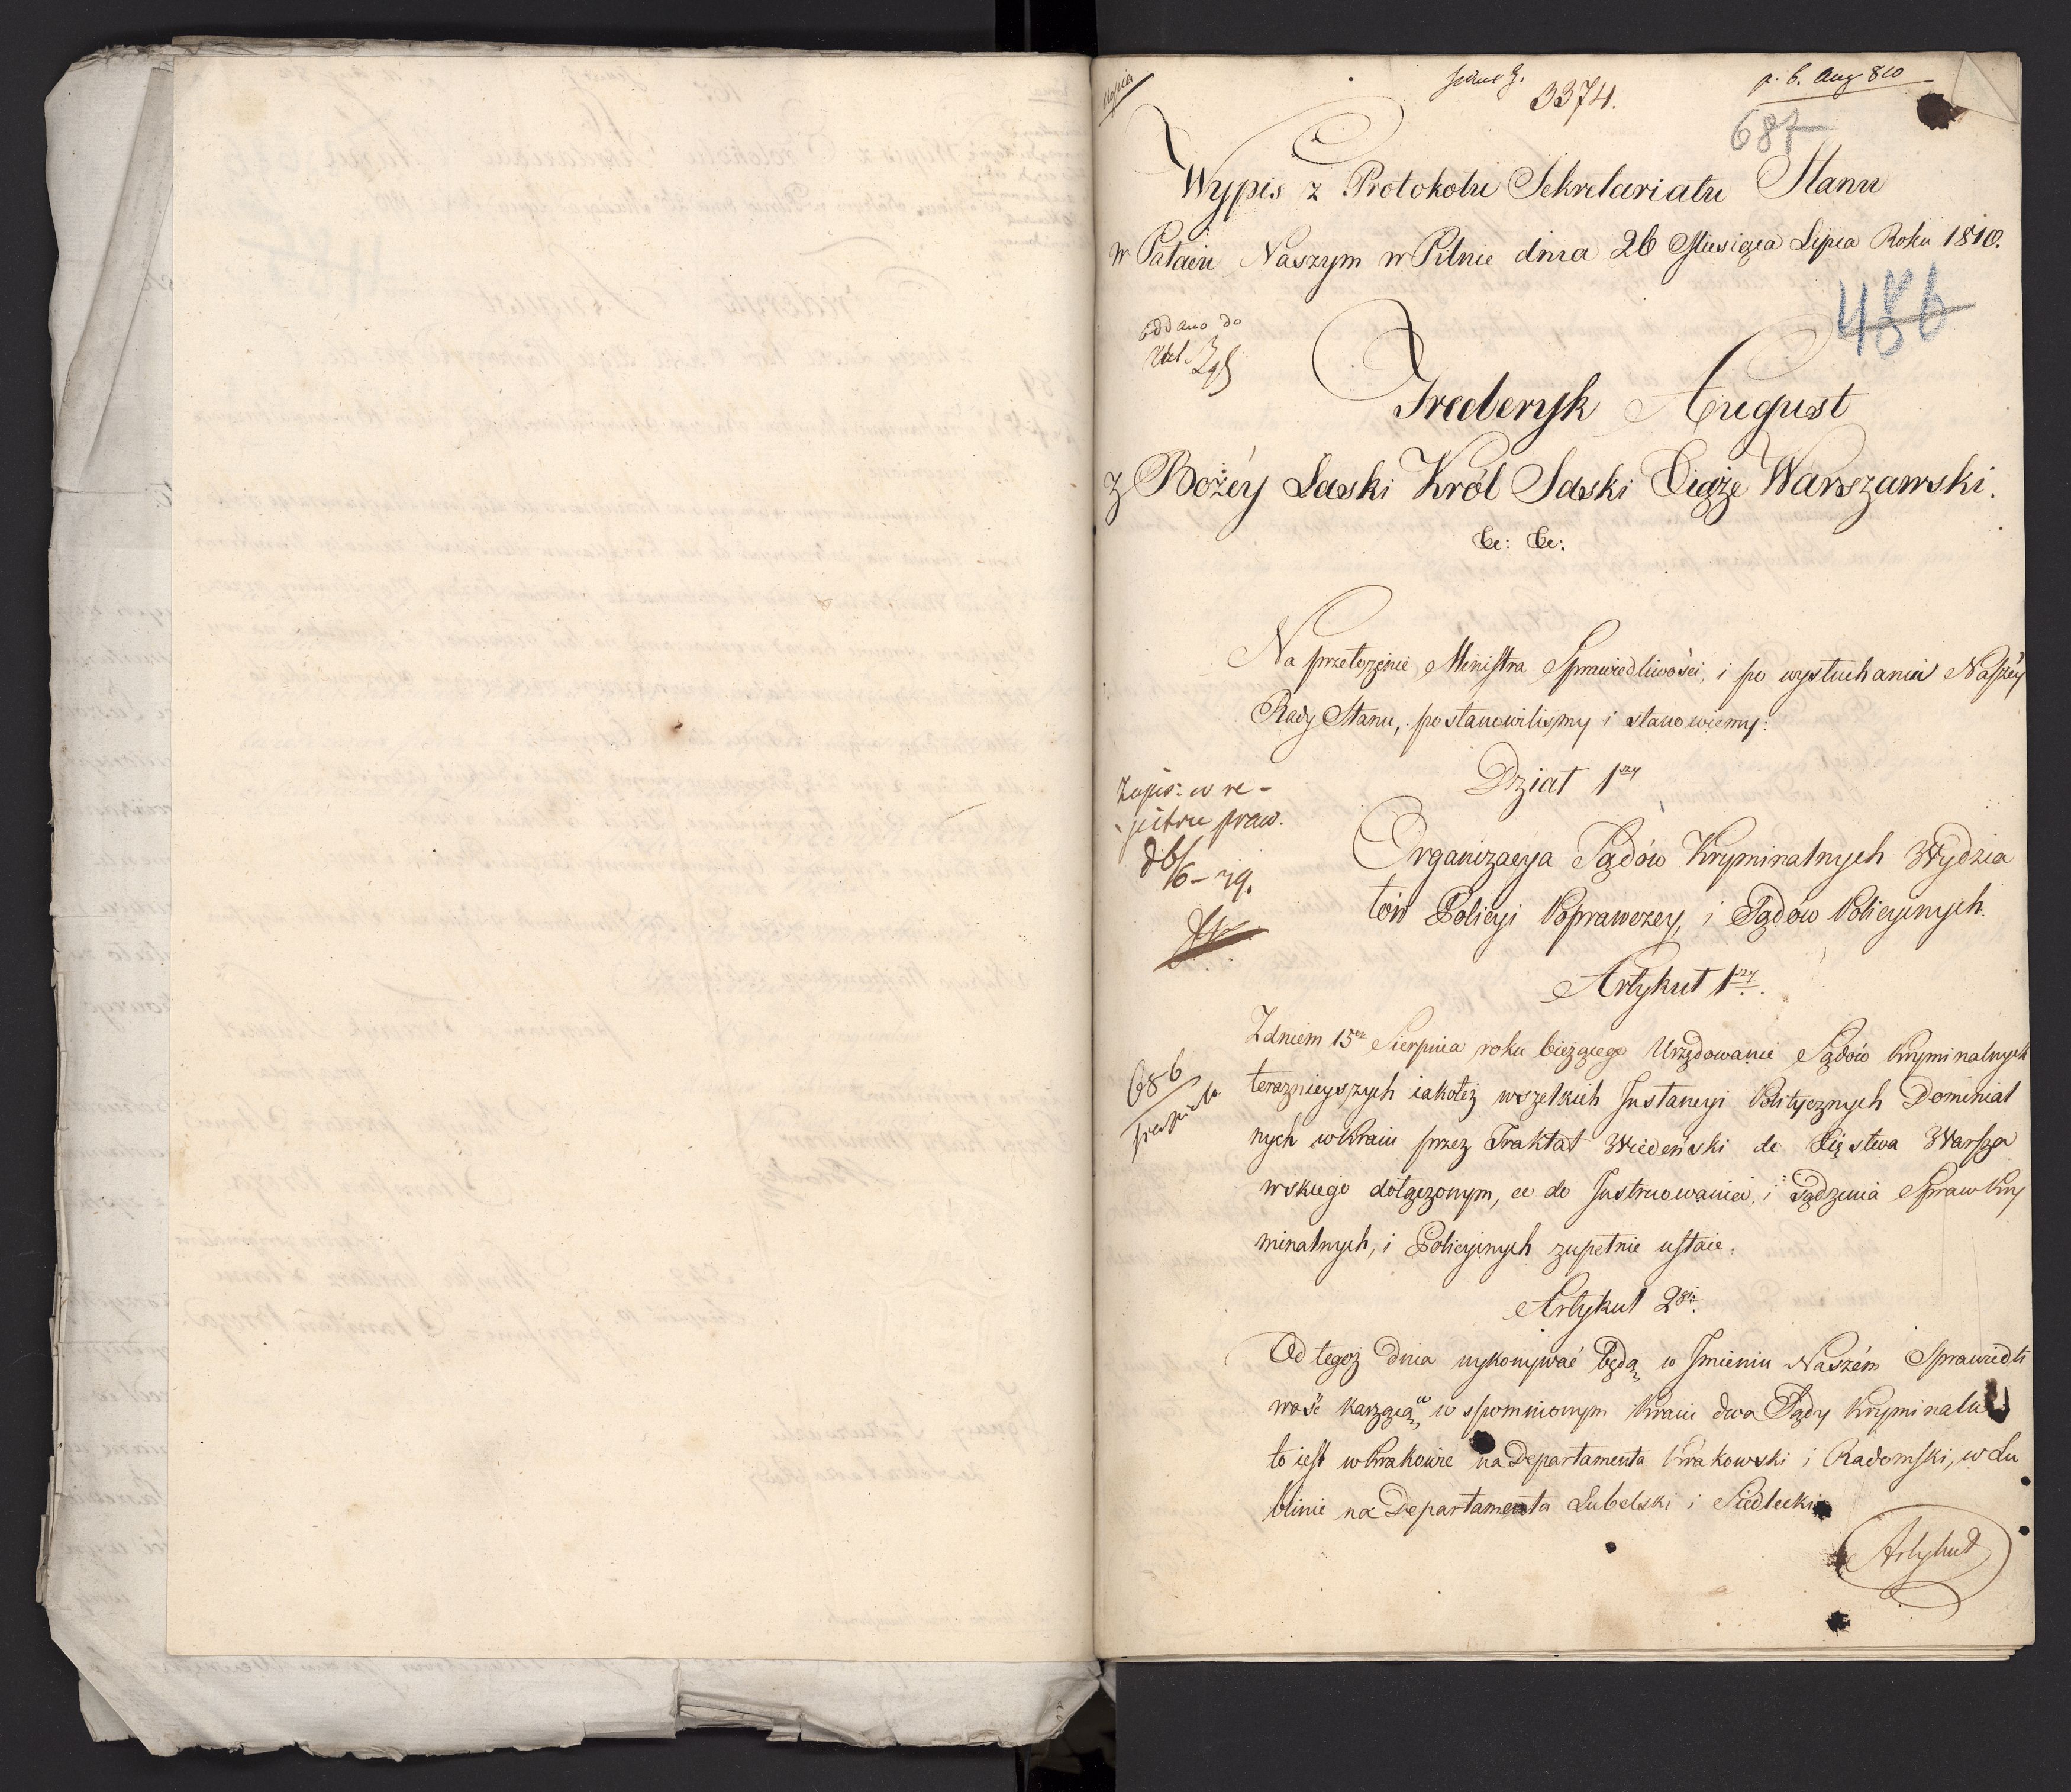 Kopia
3374.
p. 6. Aug 810
687
Wypis z Protokołu Sekretariatu Stanu
w Pałacu Naszym w Pilnic dnia 26 Miesiąca Lipca Roku 1810.
486
oddano do
Frederyk August
z Bożéy Łaski Król Saski Xiąże Warszawski.
&c: &c:
Na przełożenie Ministra Sprawiedliwości, i po wysłuchaniu Naszéy
Rady Stanu, postanowiliśmy i stanowiemy:
Dział 1szy
Zapis: w re-
jestru praw.
Organizacya Sądów Kryminalnych Wydzia
łów Policyi Poprawczey, i Sądów Policyinych.
Artykuł 1szy.
Z dniem 15m Sierpnia roku bieżącego Urzędowanie Sądów Kryminalnych
teraznieyszych iakoteż wszelkich Instancyi Politycznych Dominial
nych w Kraiu przez Traktat Wiedeński do Xięstwa Warsza
wskiego dołączonym, co do Instruowania, i Sądzenia Spraw Kry
minalnych, i Policyinych zupełnie ustaie.
686
Artykuł 2gi.
Od tegoż dnia wykonywać będą w Imieniu Naszém Sprawiedli
wość karzącą w wspomnionym Kraiu dwa Sądy Kryminalne
to iest w Krakowie na Departamenta Krakowski i Radomski, w Lu
blinie na Departamenta Lubelski i Siedlecki
Artykuł